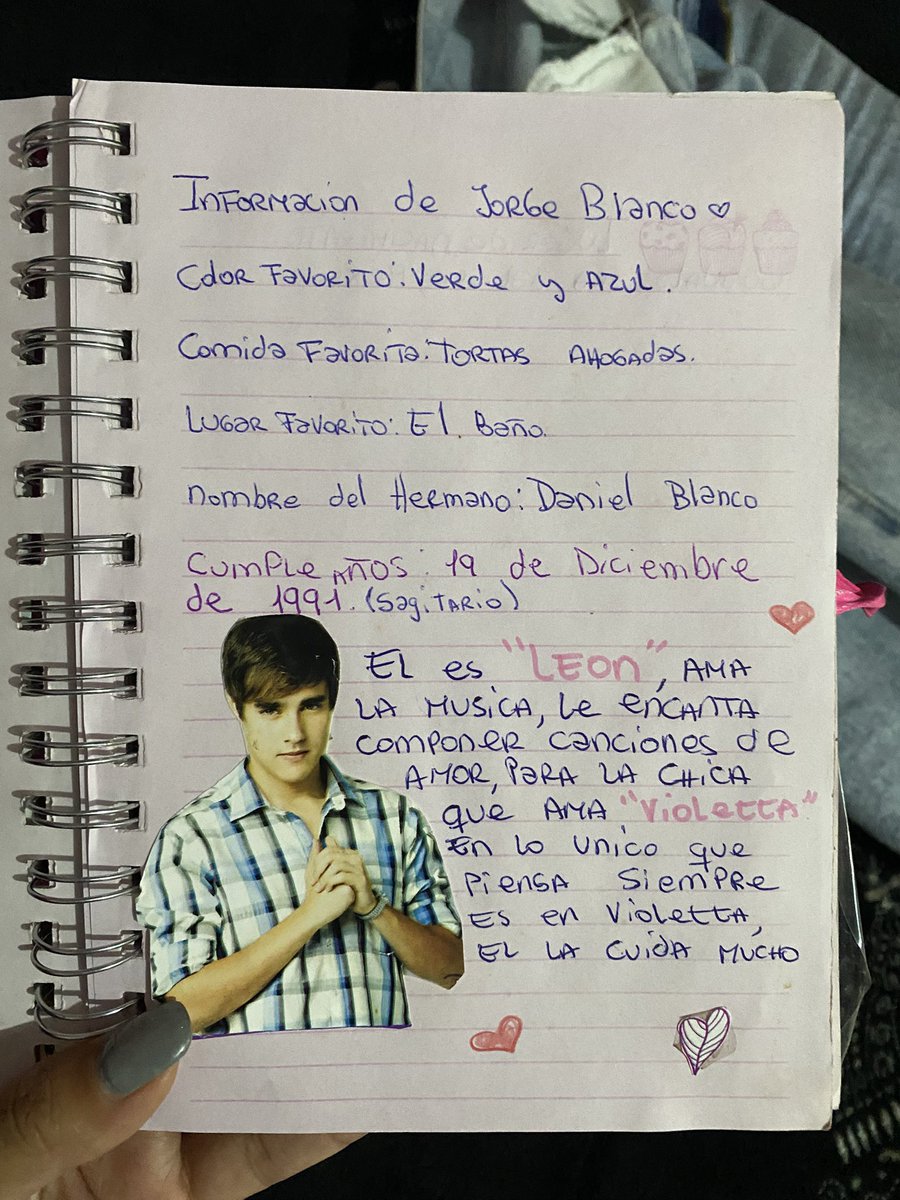 Informacion de Jorge Blanco ♡
Color Favorito: Verde y Azul.
Comida Favorita: Tortas Ahogadas.
Lugar Favorito: El Baño.
nombre del Hermano: Daniel Blanco
Cumple Años: 19 de Diciembre
de 1991. (Sagitario)
El es "LEON", AMA
LA MUSICA, Le encanta
componer canciones de
AMOR, Para LA CHICA
que AMA "Violetta"
En lo unico que
Piensa Siempre
Es en Violetta,
EL LA CUIDA MUCHO